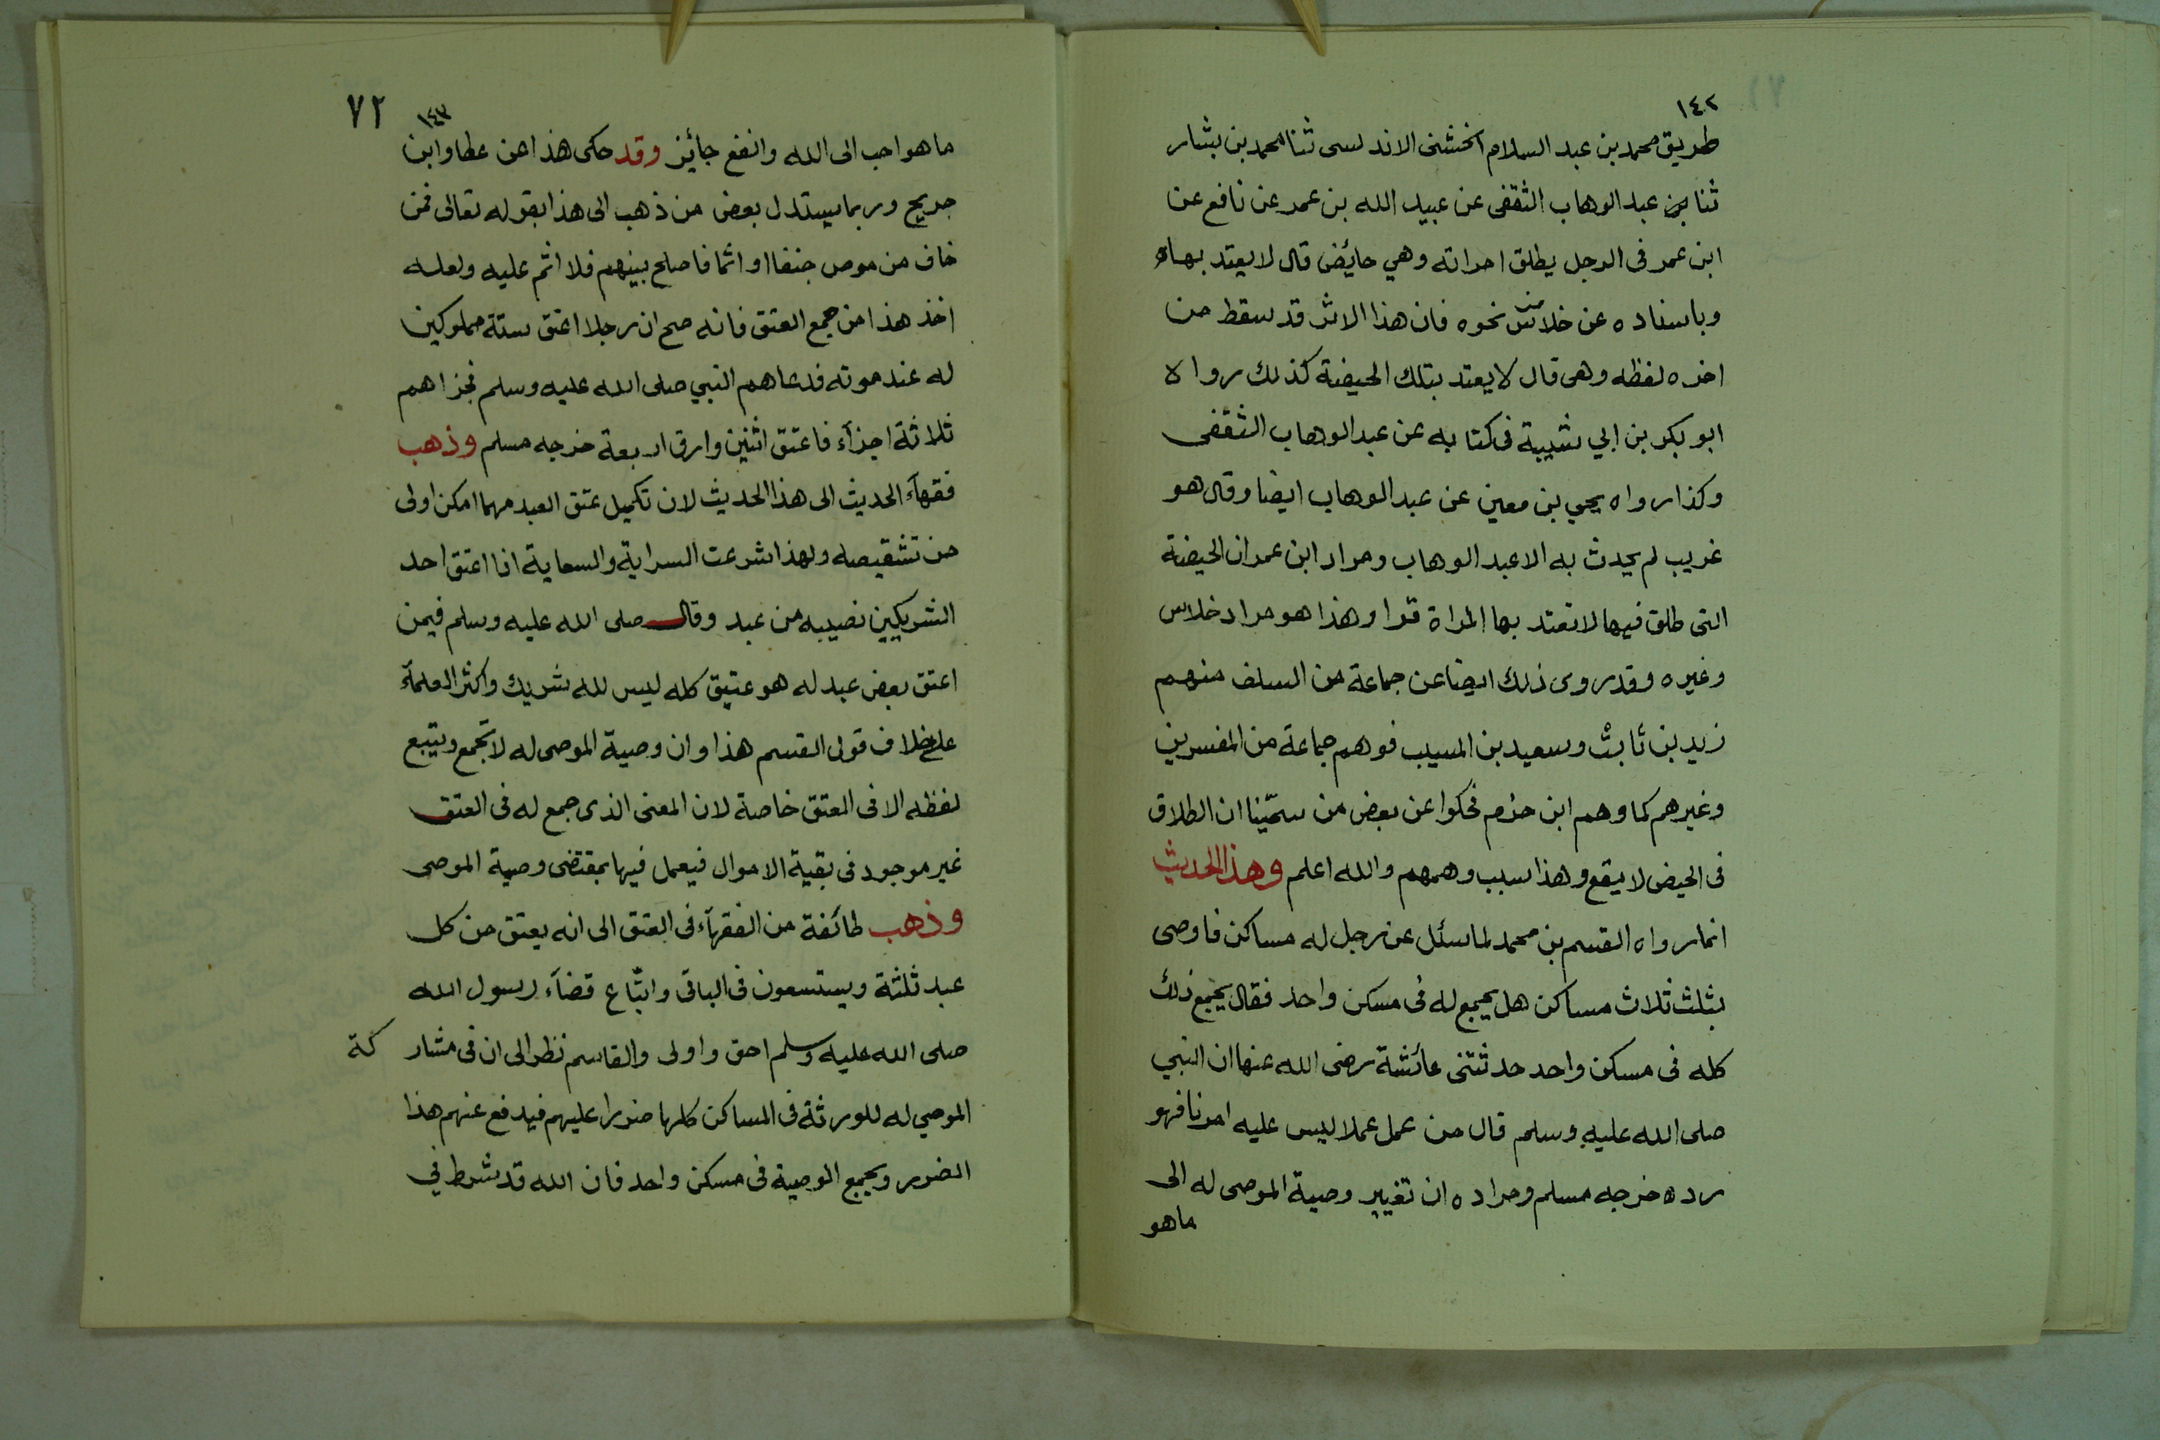 ١٤٢
طريق محمد بن عبد السلام الخشنى الاندلسى ثنا محمد بن بشار
ثنا بن عبد الوهاب الثقفى عن عبيد الله بن عمر عن نافع عن
ابن عمر فى الرجل يطلق امراته وهي حائض قال لا يعتد بها
وباسناده عن خلاس نحوه فان هذا الاثر قد سقط من
اخره لفظه وهى قال لا يعتد بتلك الحيضة كذلك رواه
ابو بكر بن ابي شيبة فى كتابه عن عبد الوهاب الثقفى
وكذا رواه يحي بن معين عن عبد الوهاب ايضا وقال هو
غريب لم يحدث به الا عبد الوهاب ومراد ابن عمر ان الحيضة
التى طلق فيها لا تعتد بها المراة قرا وهذا هو مراد خلاس
وغيره وقد روى ذلك ايضا عن جماعة من السلف منهم
زيد بن ثابت وسعيد بن المسيب فوهم جماعة من المفسرين
وغيرهم كما وهم ابن حزم فحكوا عن بعض من سمّينا ان الطلاق
فى الحيض لا يقع وهذا سبب وهمهم والله اعلم وهذا الحديث
انما رواه القسم بن محمد لما سئل عن رجل له مساكن فاوصى
بثلث ثلاث مساكن هل يجمع له فى مسكن واحد فقال يجمع ذلك
كله فى مسكن واحد حدثتنى عائشة رضى الله عنها ان النبي
صلى الله عليه وسلم قال من عمل عملا ليس عليه امرنا فهو
رده خرجه مسلم ومراده ان تغيير وصية الموصى له الى
ماهو
٧٢
١٤٣
ما هو احب الى الله وانفع جائز وقد حكى هذا عن عطا وابن
جريج وربما يستدل بعض من ذهب الى هذا بقوله تعالى فمن
خاف من موص جنفا او اثما فاصلح بينهم فلا اثم عليه ولعله
اخذ هذا من جمع العتق فانه صح ان رجلا اعتق ستة مملوكين
له عند موته فدعاهم النبي صلى الله عليه وسلم فجزاهم
ثلاثة اجزآء فاعتق اثنين وارق اربعة خرجه مسلم وذهب
فقهآء الحديث الى هذا الحديث لان تكميل عتق العبد مهما امكن اولى
من تشقيصه ولهذا شرعت السراية والسعاية اذا اعتق احد
الشريكين نصيبه من عبد وقال صلى الله عليه وسلم فيمن
اعتق بعض عبد له هو عتيق كله ليس لله شريك واكثر العلمآء
على خلاف قول القسم هذا وان وصية الموصى له لا تجمع ويتبع
لفظه الا فى العتق خاصة لان المعنى الذى جمع له فى العتق
غير موجود فى بقية الاموال فيعمل فيها بمقتضى وصية الموصى
وذهب طائفة من الفقهآء فى العتق الى انه يعتق من كل
عبد ثلثة ويستسعون فى الباقى واتباع قضآء رسول الله
صلى الله عليه وسلم احق واولى والقاسم نظر الى ان فى مشار كة
الموصي له للورثة فى المساكن كلها ضررا عليهم فيدفع عنهم هذا
الضرر ويجمع الوصية فى مسكن واحد فان الله قد شرط في